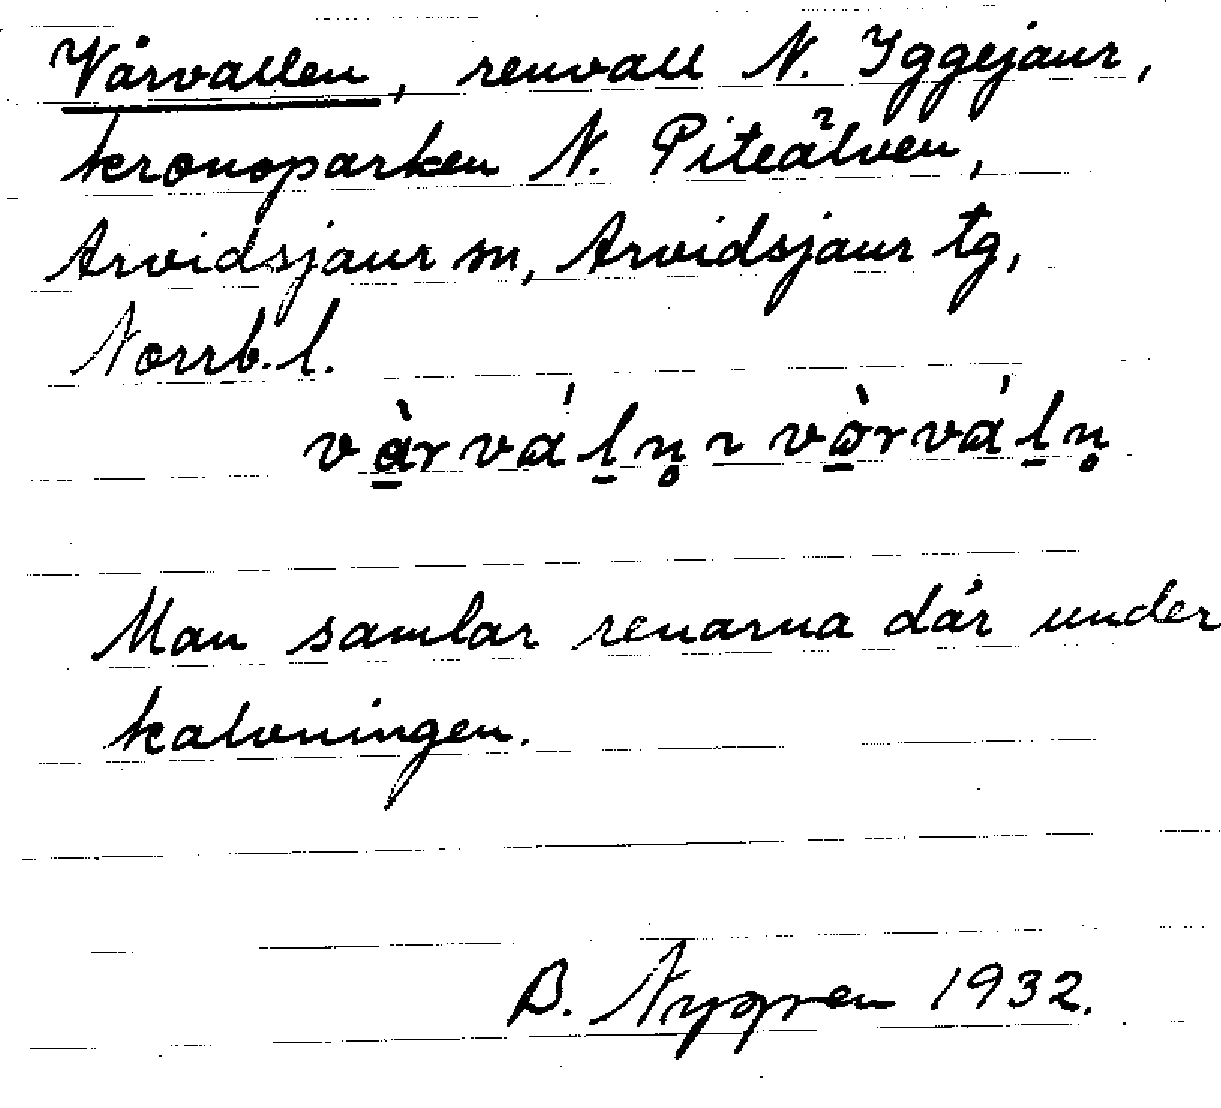 Vårvallen, renvall N. Iggejaur,
kronoparken N. Piteälven,
Arvidsjaur sn, Arvidsjaur tg,
Norrb. l.
Man samlar renarna där under
kalvningen.
B. Nygren 1932.